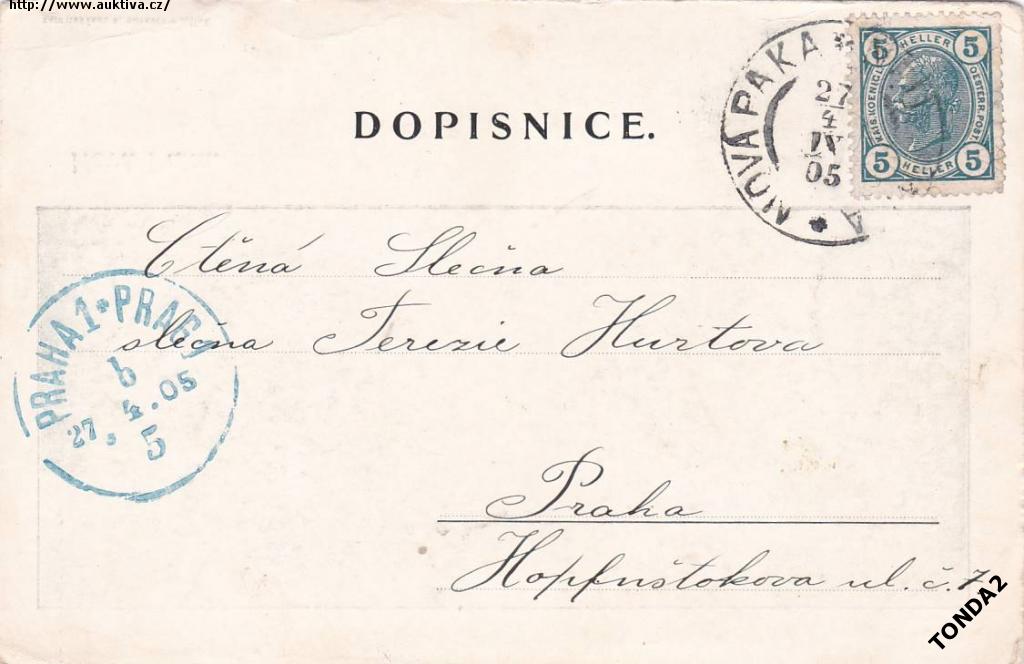 http://www.auktiva.cz/
DOPISNICE.
NOVÁ PAKA
27
4
IV
05
5 HELLER 5
KAIS. KOENIGL. OESTERR. POST.
5 HELLER 5
Ctěná Slečna
slečna Terezie Hurtova
PRAHA 1 * PRAG 1
b
27. 4. 05
5
Praha
Hopfnštokova ul. č. 7
TONDA2